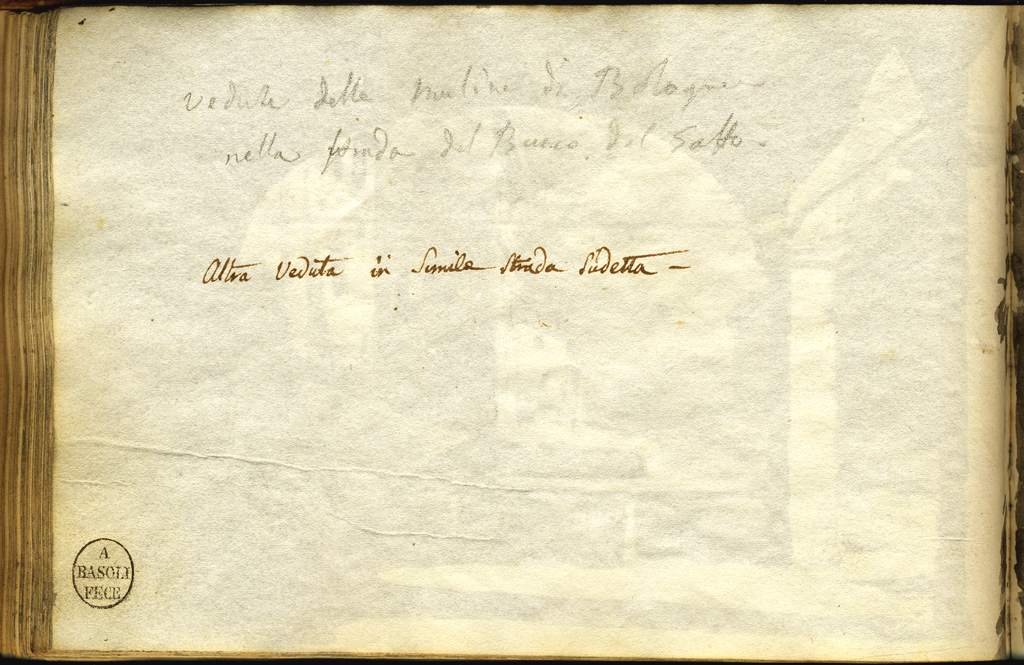 Vedute delle muline di Bologna
nella strada del Buco del Gatto.
Altra Veduta in Simile Strada Sudetta –
A
BASOLI
FECE